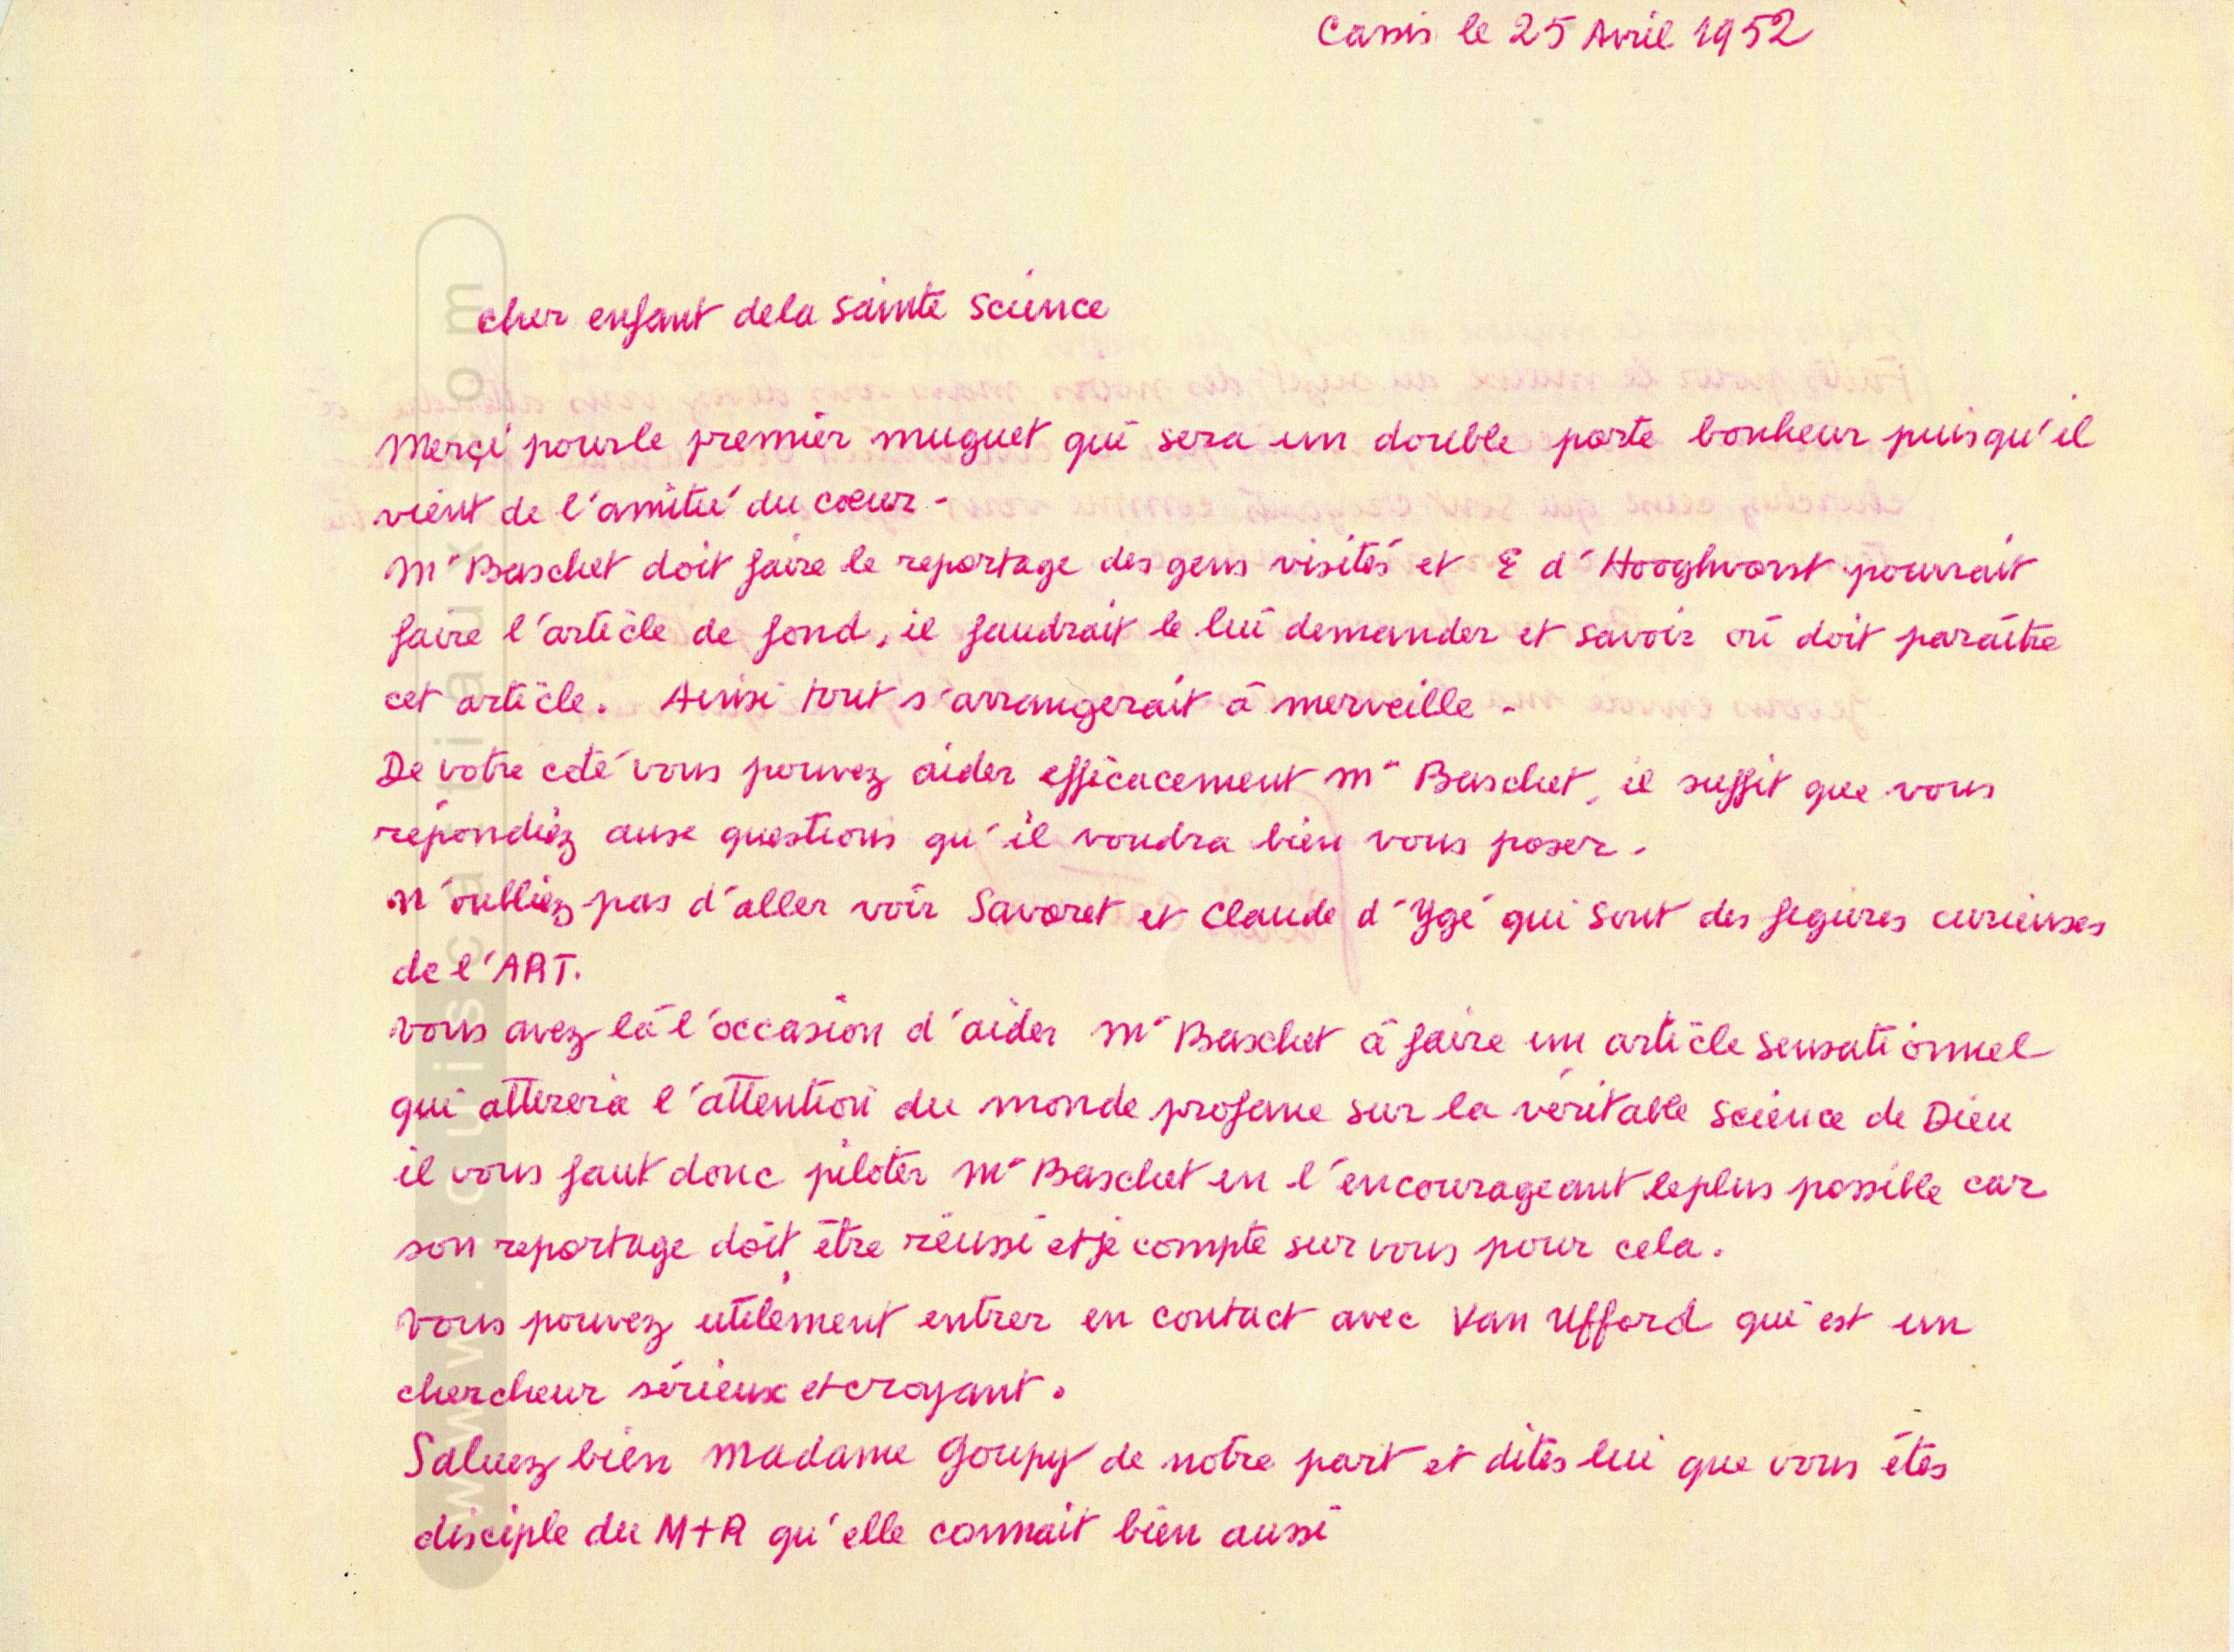 Cassis le 25 Avril 1952
cher enfant de la Sainte Science
Merçi pour le premier muguet qui sera un double porte bonheur puisqu'il
vient de l'amitié du cœur -
Mr Baschet doit faire le reportage des gens visités et E d'Hooghvorst pourrait
faire l'article de fond, il faudrait le lui demander et savoir où doit paraître
cet article. Ainsi tout s'arrangerait à merveille -
De votre coté vous pouvez aider efficacement Mr Baschet, il suffit que vous
répondiez aux questions qu'il voudra bien vous poser.
N'oubliez pas d'aller voir Savoret et Claude d'Ygé qui sont des figures curieuses
de l'ART.
Vous avez là l'occasion d'aider Mr Baschet à faire un article sensationnel
qui attirera l'attention du monde profane sur la véritable science de Dieu
il vous faut donc piloter Mr Baschet en l'encourageant le plus possible car
son reportage doit être réussi et je compte sur vous pour cela.
Vous pouvez utilement entrer en contact avec Van Ufford qui est un
chercheur sérieux et croyant.
Saluez bien Madame Goupy de notre part et dites lui que vous êtes
disciple du M+R qu'elle connait bien aussi
www.louiscattiaux.com